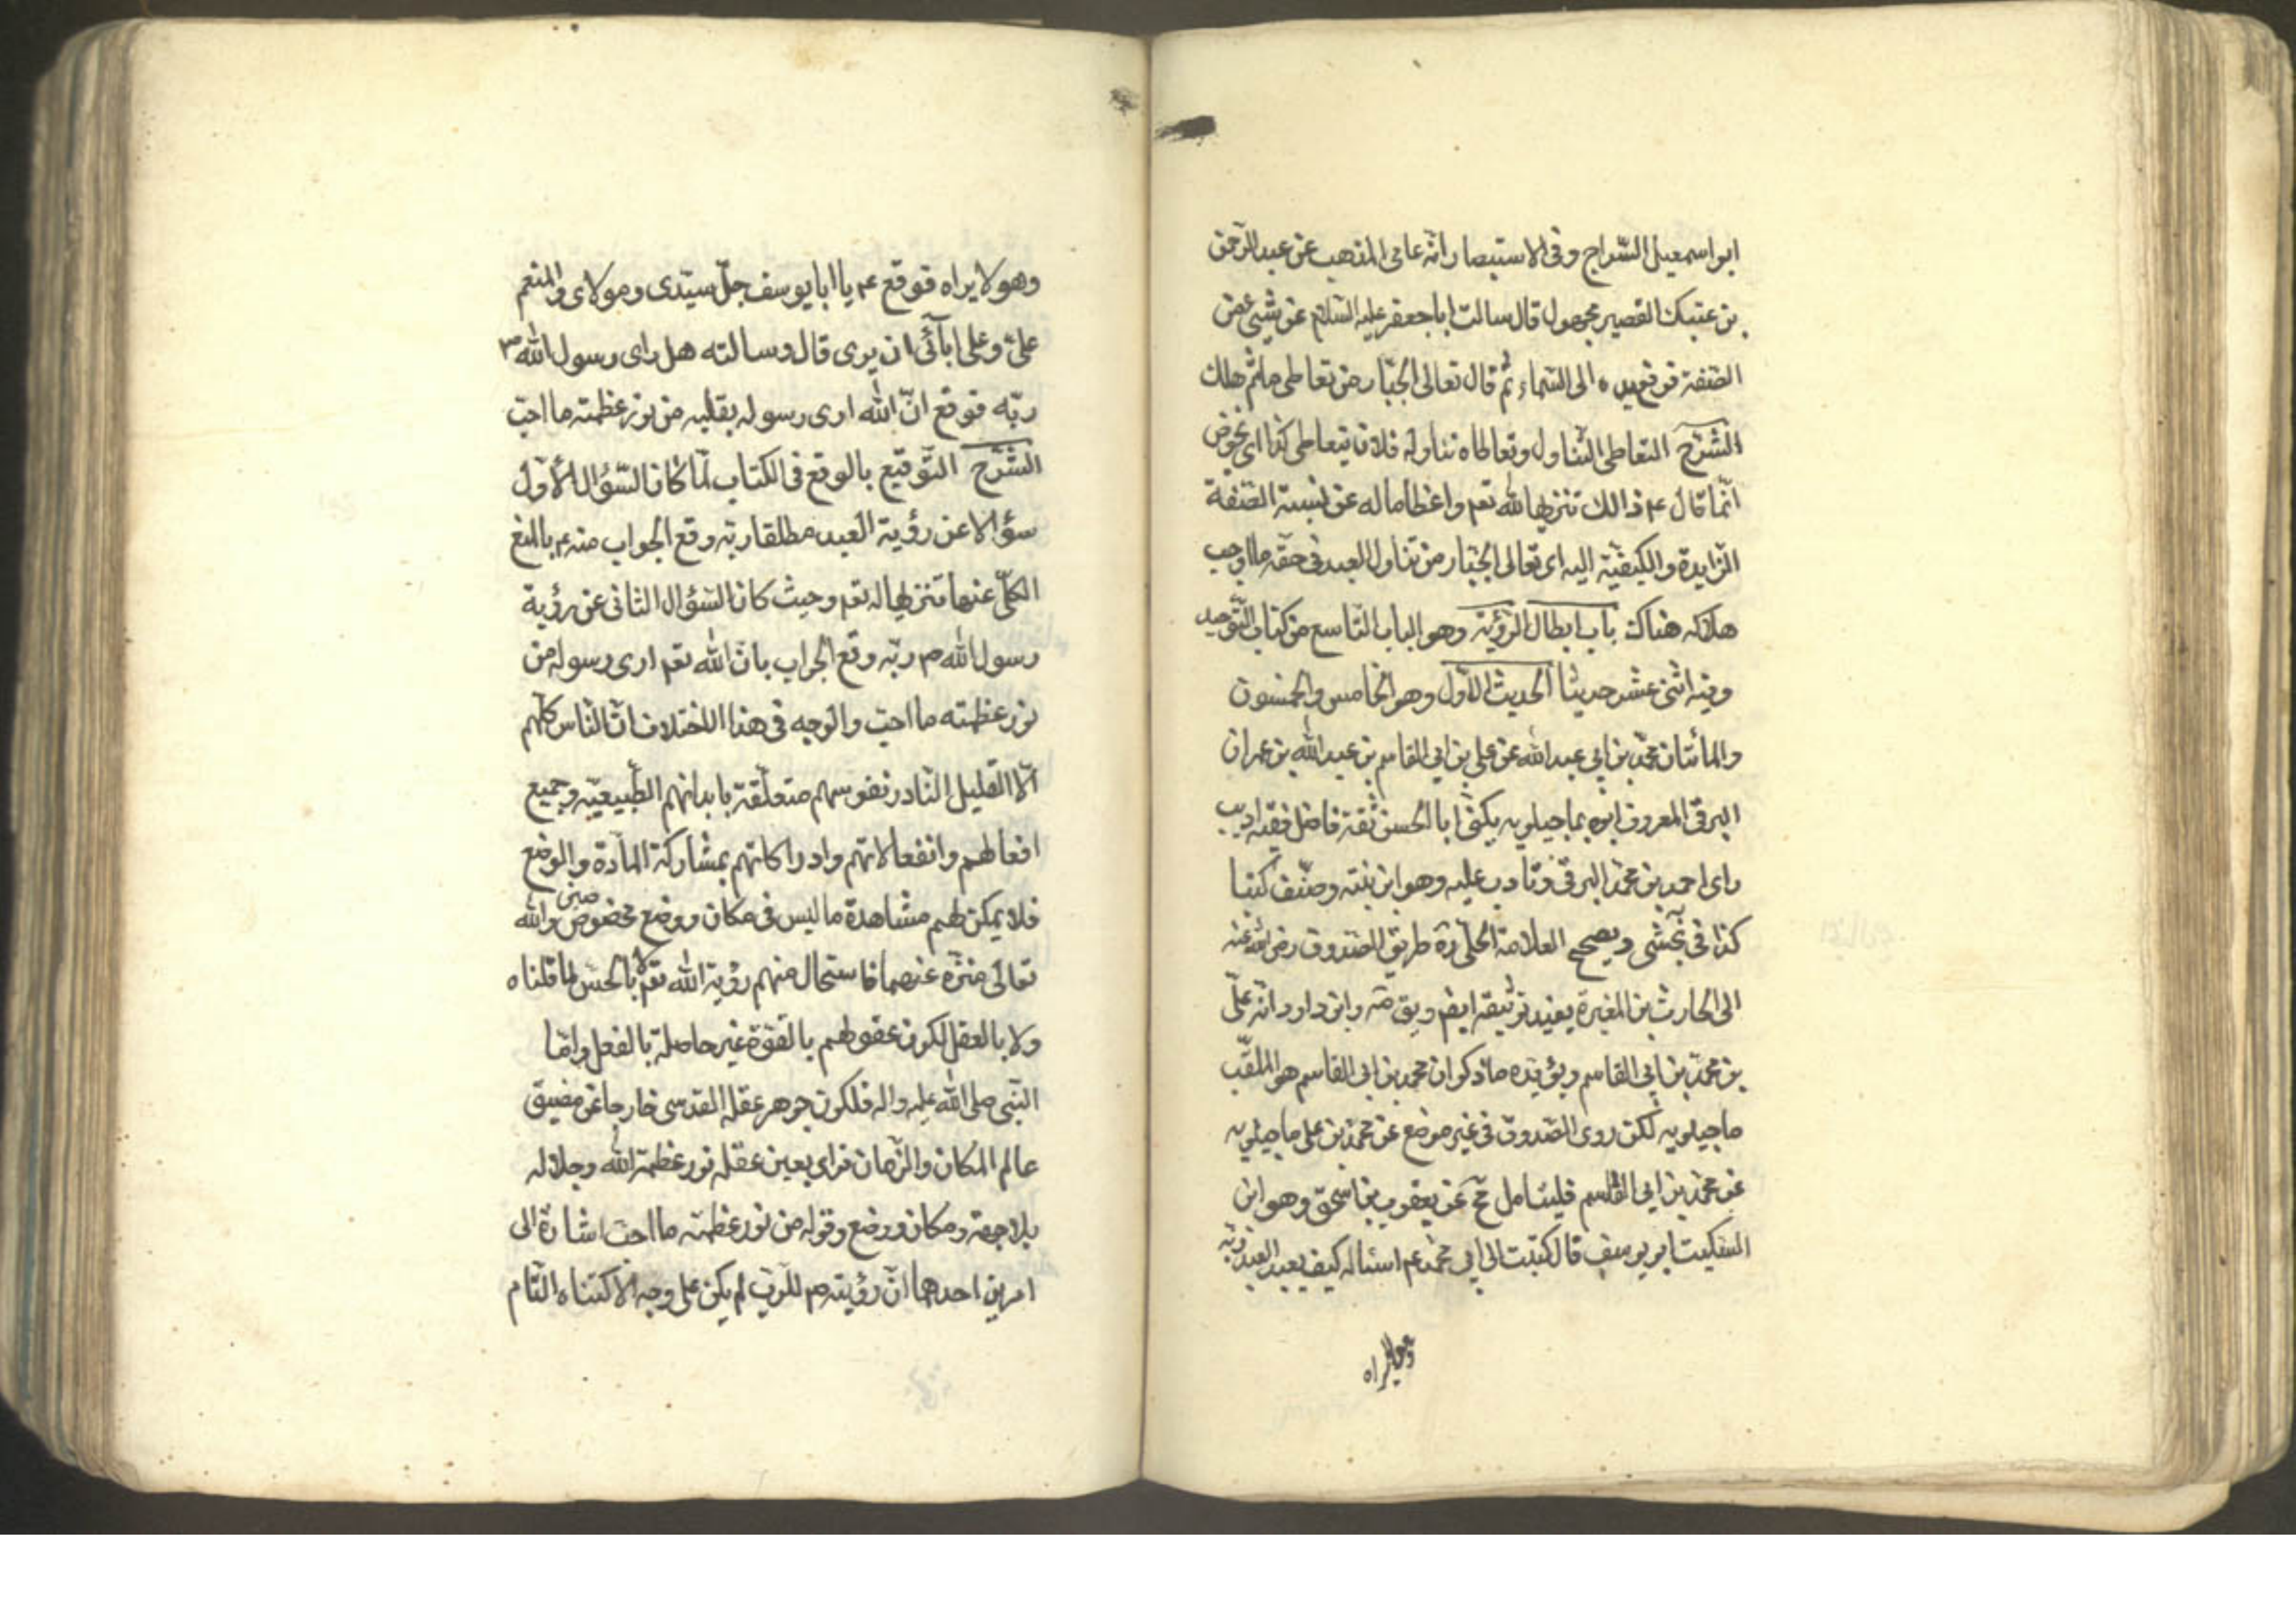 ابو اسمعيل السّراج وفى الاستبصار انّه عامى المذهب عن عبد الرّحمن
بن عتيك القصير مجهول قال سالت ابا جعفر عليه السّلام عن شئ من
الصّفة فرفع يده الى السّماء ثم قال تعالى الجبّار من تعاطى ما ثمّ هلك
الشّرح التعاطى التّناول وتعاطاه تناوله فلان يتعاطى كذا اى يخوض
انّما قال ع ذالك تنزيها لله تعم واعظاما له عن نسبة الصّفة
الزّايدة والكيفيّة اليه اى تعالى الجبّار من تناول العبد فى حقّه ما اوجب
هلاكه هناك باب ابطال الرّؤية وهو الباب التّاسع من كتاب التّوحيد
وفيه اثنى عشر حديثا الحديث الاوّل وهو الخامس والخمسون
والمائتان محمّد بن ابى عبد الله عن على بن ابى القاسم بن عبد الله بن عمران
البرقى المعروف ابوه بماجيلويه يكنى ابا الحسن ثقة فاضل فقيه اديب
راى احمد بن محمّد البرقى وتادب عليه وهو ابن بنته وصنّف كتبا
كذا فى نجشى ويصحح العلامة الحلّى ره طريق الصّدوق رضى الله عنه
الى الحارث بن المغيرة يفيد توثيقه ايضم ويق صه وابن داود انّه علىّ
بن محمّد بن ابى القاسم ويؤيّده ما ذكر ان محمّد بن ابى القاسم هو الملقّب
ماجيلويه لكن روى الصّدوق فى غير موضع عن محمّد بن على ماجيلويه
عن محمّد بن ابى القاسم فليتامل عن يعقوب بن اسحق وهو ابن
السكيت ابو يوسف قال كتبت الى ابى محمّد عم اسئاله كيف يعبد العبد ربّه
وهو لا يراه
وهو لا يراه فوقع عم يا ابا يوسف جلّ سيّدى ومولاى والمنعم
علىّ وعلى ابائى ان يرى قال وسالته هل راى رسول الله ص
ربّه فوقع انّ الله ارى رسوله بقلبه من نور عظمته ما احبّ
الشّرح التّوقيع بالوقع فى الكتاب لمّا كان السّؤال الاوّل
سؤالا عن رؤية العبد مطلقا ربّه وقع الجواب منه عم بالمنع
الكلّى عنها تنزيها له تعم وحيث كان السّؤال الثانى عن رؤية
رسول الله ص ربّه وقع الجواب بان الله تعم ارى رسوله من
نور عظمته ما احبّ والوجه فى هذا الاختلاف انّ النّاس كلّهم
الّا القليل النّادر نفوسهم متعلّقة بابدانهم الطّبيعيّه وجميع
افعالهم وانفعالاتهم وادراكاتهم بمشاركة المادّة والوضع
فلا يمكن لهم مشاهدة ما ليس فى مكان ووضع مخصوصين والله
تعالى منزّه عنهما فاستحال منهم رؤية الله تعم لا بالحسّ لما قلناه
ولا بالعقل لكون عقولهم بالقوّة غير حاصلة بالفعل وامّا
النّبى صلى الله عليه واله فلكون جوهر عقله القدسى خارجا عن مضيق
عالم المكان والزّمان فراى بعين عقله نور عظمة الله وجلاله
بلا جهة ومكان ووضع وقوله من نور عظمته ما احبّ اشارة الى
امرين احدهما انّ رؤيته ص للرّبّ لم يكن على وجه الاكتناه التّام